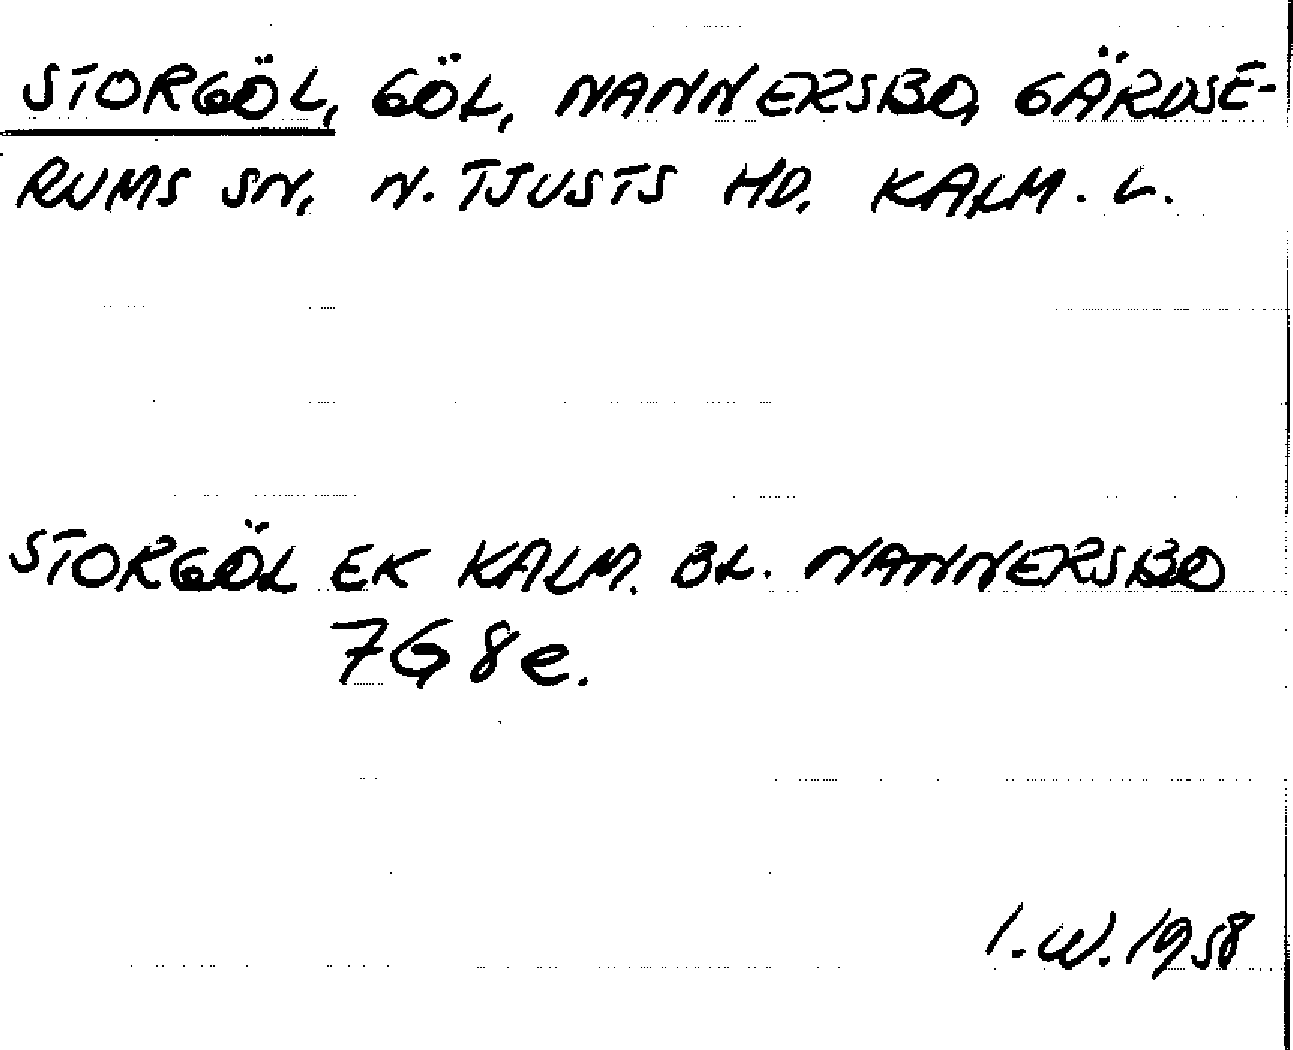 STORGÖL, GÖL, NANNERSBO, GÄRDSE-
RUMS SN, N. TJUSTS HD, KALM. L.
STORGÖL EK KALM. BL. NANNERSBO
7G8e.
I.W. 1958